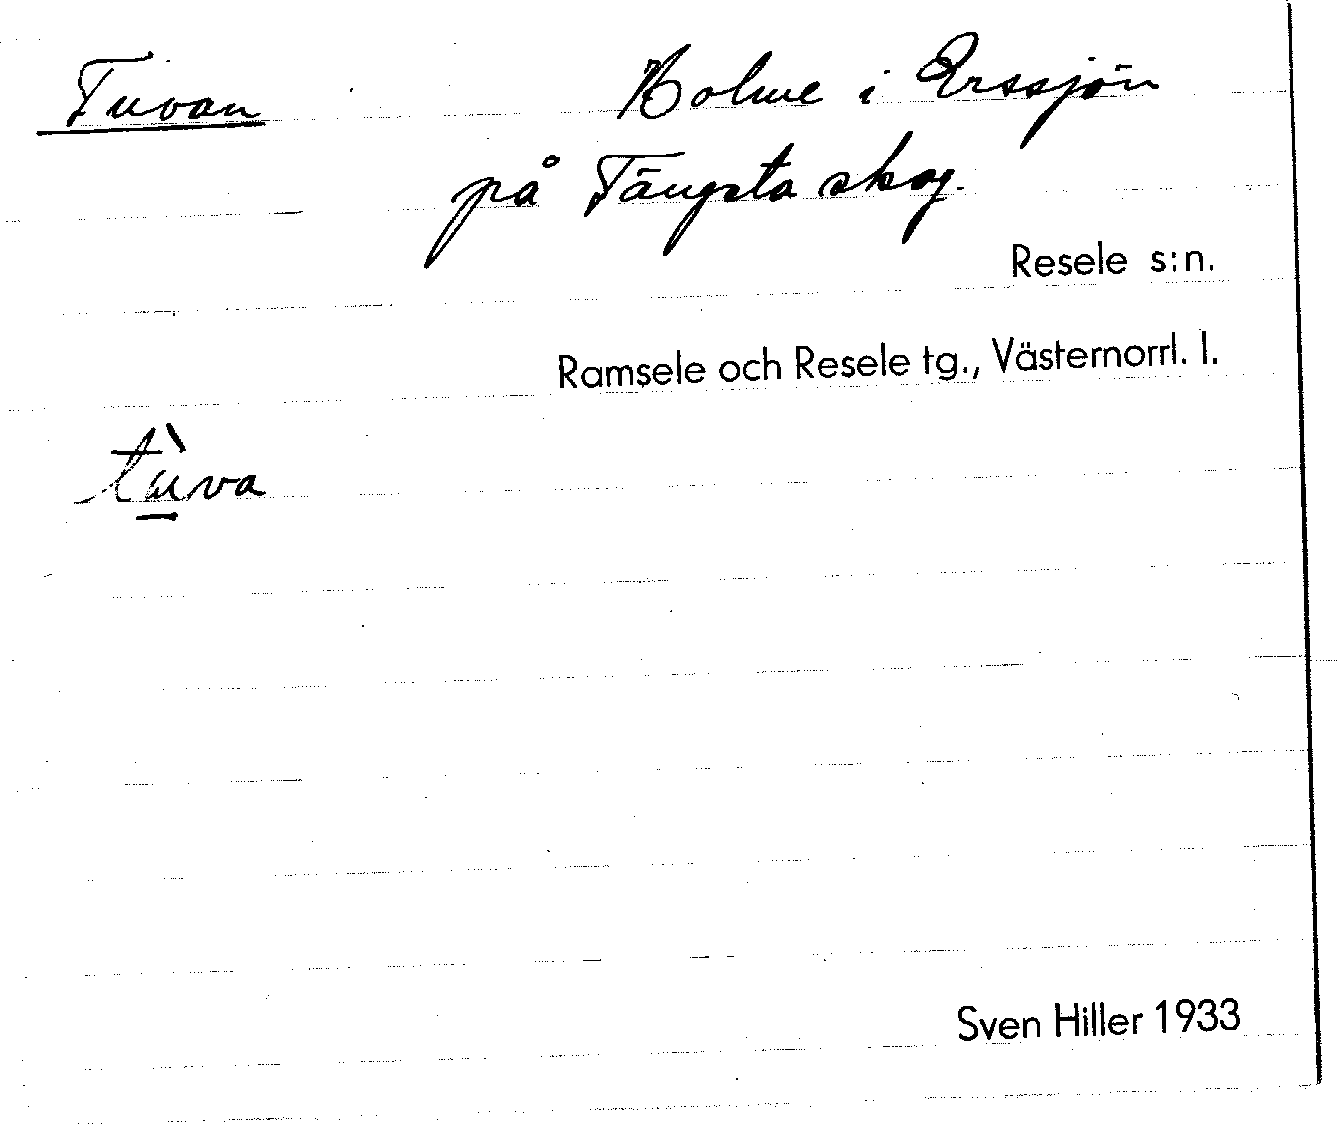 Tuvan Holme i Erssjön
på Tängsta skog.
Resele s:n.
Ramsele och Resele tg., Västernorrl. l.
tùva
Sven Hiller 1933